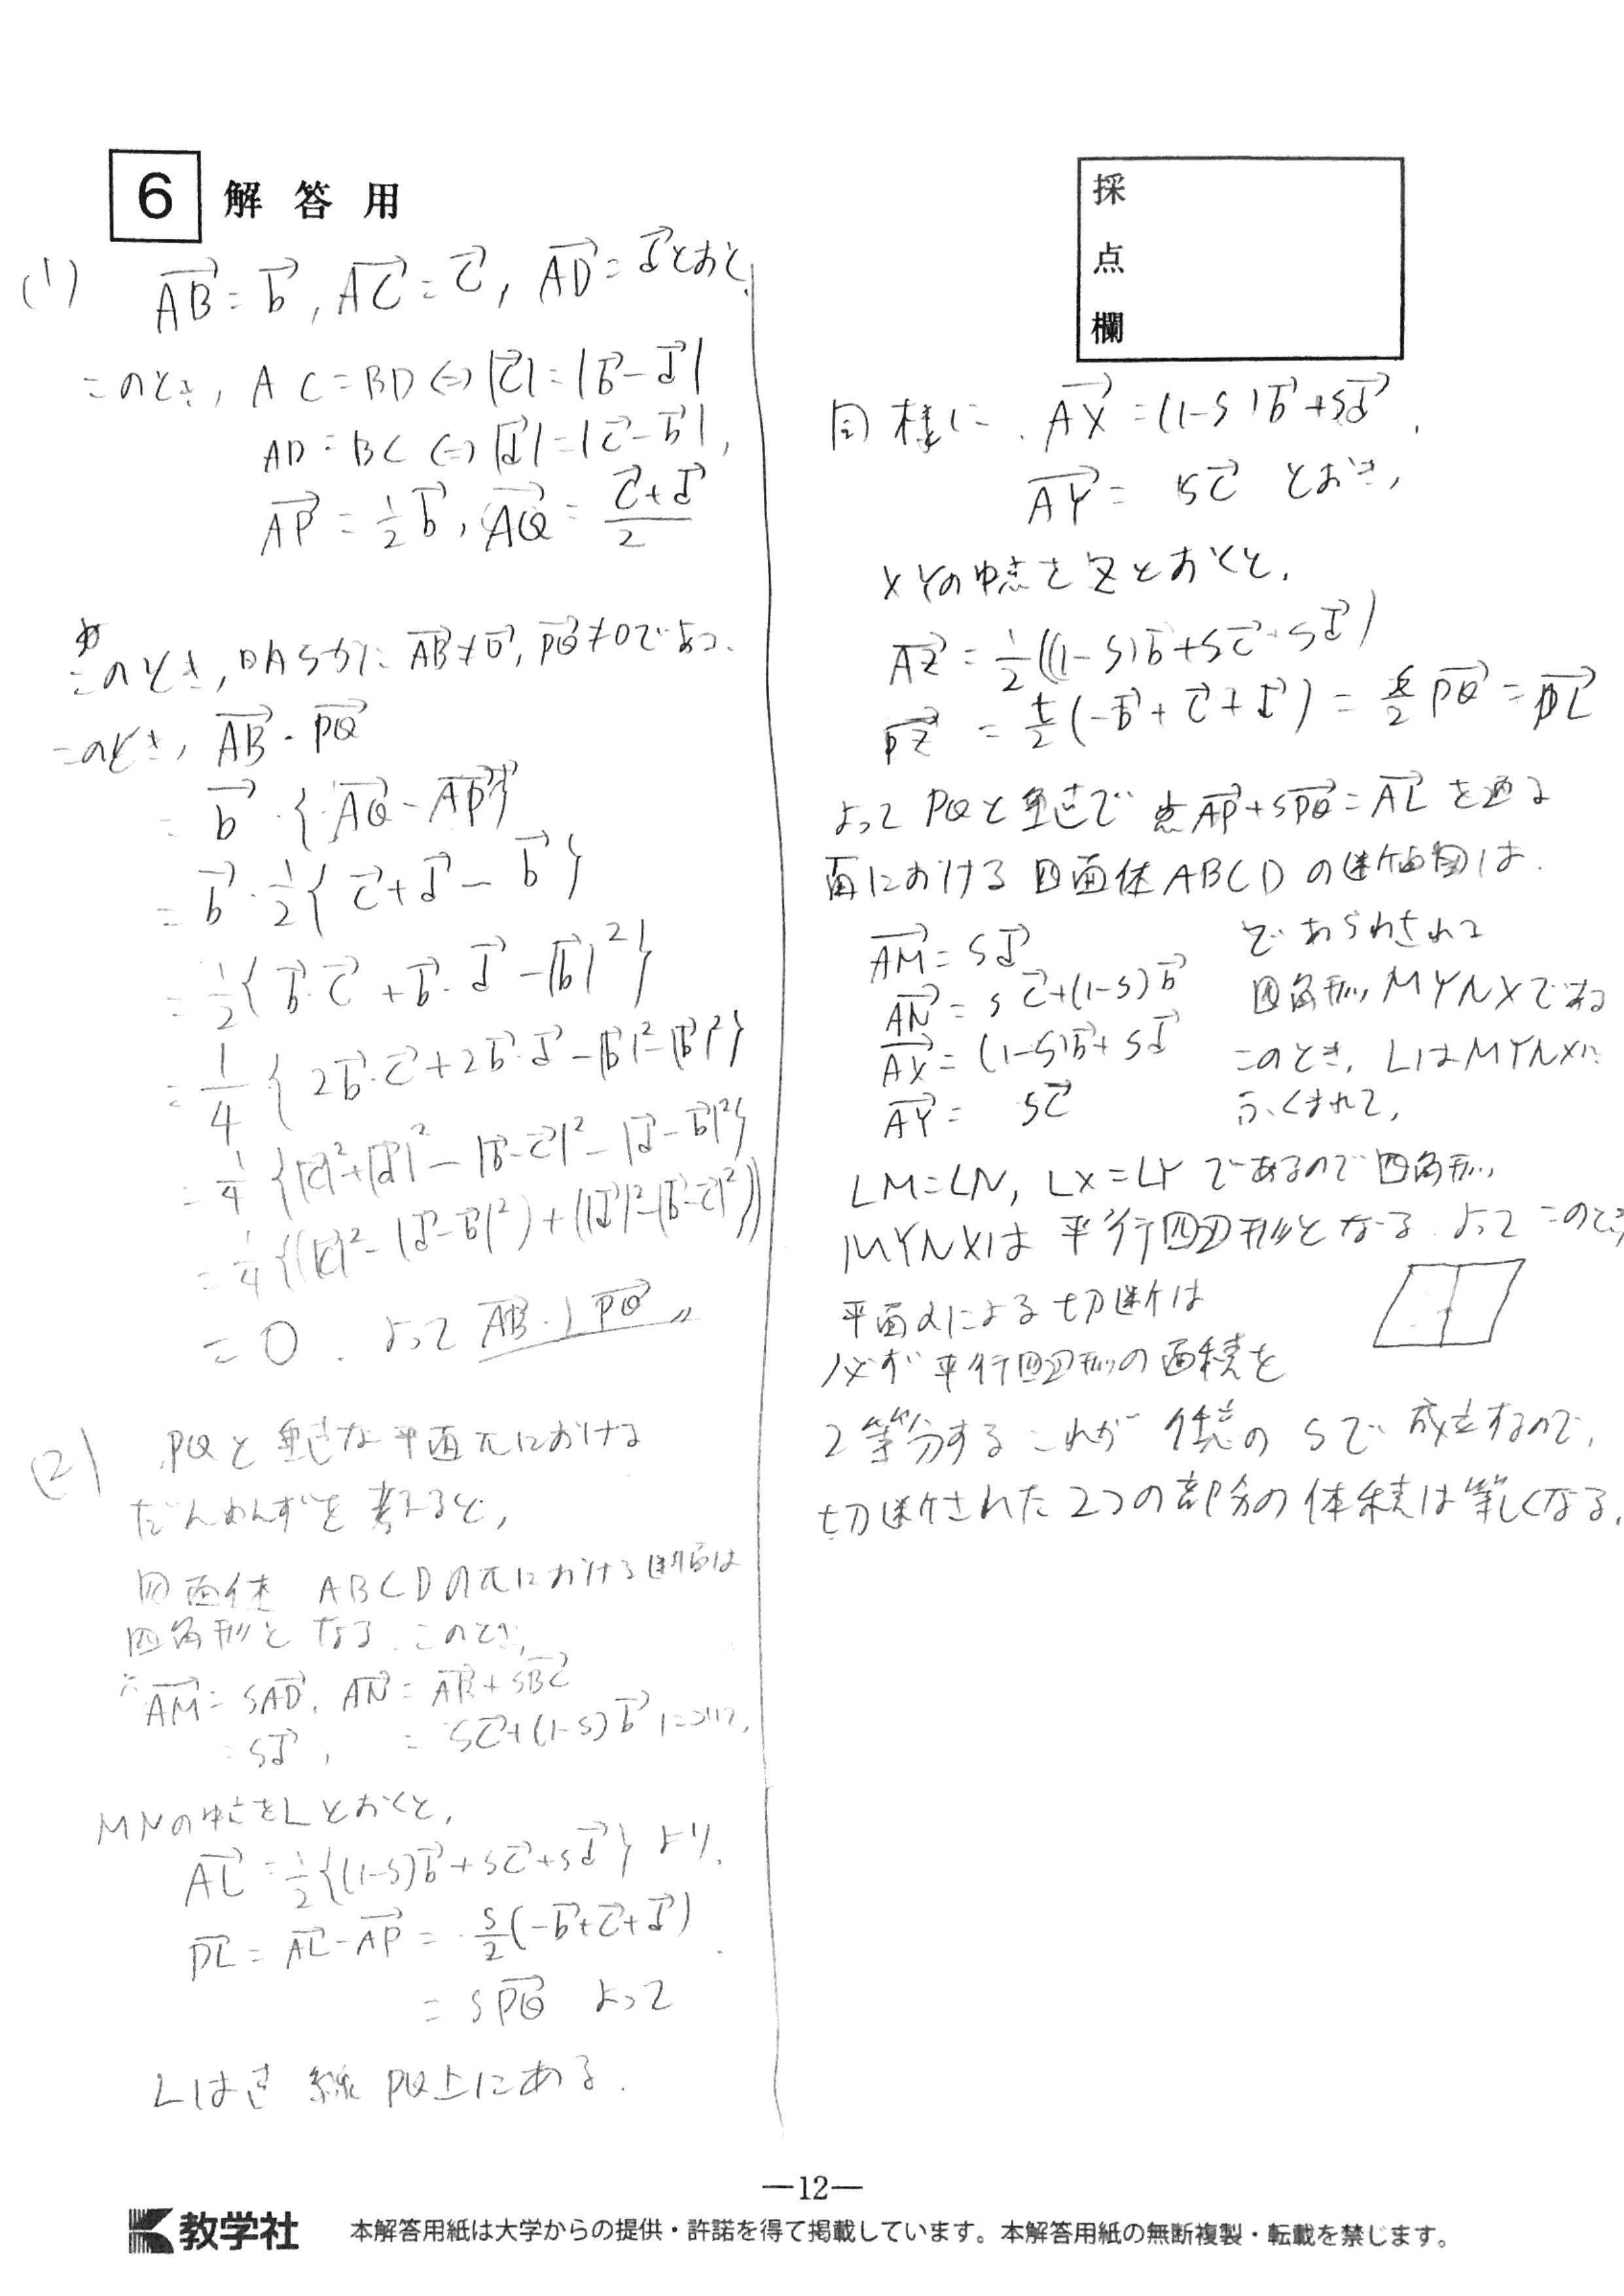 6 解答用
採点欄
(1) $\overrightarrow{AB}=\vec{b}, \overrightarrow{AC}=\vec{c}, \overrightarrow{AD}=\vec{d}$とおく.
このとき, $AC=BD \Leftrightarrow |\vec{c}|=|\vec{b}-\vec{d}|$
$AD=BC \Leftrightarrow |\vec{d}|=|\vec{c}-\vec{b}|$,
$\overrightarrow{AP}=\frac{1}{2}\vec{b}, \overrightarrow{AQ}=\frac{\vec{c}+\vec{d}}{2}$
このとき, 明らかに $\overrightarrow{AB}\neq\vec{0}, \overrightarrow{PQ}\neq 0$であって.
このとき, $\overrightarrow{AB}\cdot\overrightarrow{PQ}$
$=\vec{b}\cdot\{\overrightarrow{AQ}-\overrightarrow{AP}\}$
$=\vec{b}\cdot\frac{1}{2}\{\vec{c}+\vec{d}-\vec{b}\}$
$=\frac{1}{2}\{\vec{b}\cdot\vec{c}+\vec{b}\cdot\vec{d}-|\vec{b}|^2\}$
$=\frac{1}{4}\{2\vec{b}\cdot\vec{c}+2\vec{b}\cdot\vec{d}-|\vec{b}|^2-|\vec{b}|^2\}$
$=\frac{1}{4}\{|\vec{c}|^2+|\vec{d}|^2-|\vec{b}-\vec{c}|^2-|\vec{d}-\vec{b}|^2\}$
$=\frac{1}{4}\{(|\vec{c}|^2-|\vec{d}-\vec{b}|^2)+(|\vec{d}|^2-|\vec{b}-\vec{c}|^2)\}$
$=0$. よって $\overrightarrow{AB}\perp\overrightarrow{PQ}$ 〃
(2) PQと垂直な平面πにおける
だんめんずを考えると,
四面体 ABCDのπにおける断面は
四角形となる. このとき,
$\overrightarrow{AM}=s\overrightarrow{AD}, \overrightarrow{AN}=\overrightarrow{AB}+s\overrightarrow{BC}$
$=s\vec{d}, =s\vec{c}+(1-s)\vec{b}$ について,
MNの中点をLとおくと,
$\overrightarrow{AL}=\frac{1}{2}\{(1-s)\vec{b}+s\vec{c}+s\vec{d}\}$ より,
$\overrightarrow{PL}=\overrightarrow{AL}-\overrightarrow{AP}=\frac{s}{2}(-\vec{b}+\vec{c}+\vec{d})$
$=s\overrightarrow{PQ}$ よって
Lは 線 PQ上にある.
同様に. $\overrightarrow{AX}=(1-s)\vec{b}+s\vec{d}$,
$\overrightarrow{AY}=s\vec{c}$ とおき,
XYの中点をZとおくと,
$\overrightarrow{AZ}=\frac{1}{2}((1-s)\vec{b}+s\vec{c}+s\vec{d})$
$\overrightarrow{PZ}=\frac{t}{2}(-\vec{b}+\vec{c}+\vec{d})=\frac{s}{2}\overrightarrow{PQ}=\overrightarrow{PL}$
よって PQと垂直で 点$\overrightarrow{AP}+s\overrightarrow{PQ}=\overrightarrow{AL}$ を通る
面における 四面体ABCDの断面図は.
$\overrightarrow{AM}=s\vec{d}$ であらわされる
$\overrightarrow{AN}=s\vec{c}+(1-s)\vec{b}$ 四角形MYNXである
$\overrightarrow{AX}=(1-s)\vec{b}+s\vec{d}$ このとき, LはMYNXに
$\overrightarrow{AY}=s\vec{c}$ ふくまれて,
LM=LN, LX=LY であるので四角形
MYNXは 平行四辺形となる. よって このとき
平面αによる切断は
必ず平行四辺形の面積を
2等分する これが 任意の sで 成立するので,
切断された2つの部分の体積は等しくなる.
—12—
教学社 本解答用紙は大学からの提供・許諾を得て掲載しています。本解答用紙の無断複製・転載を禁じます。